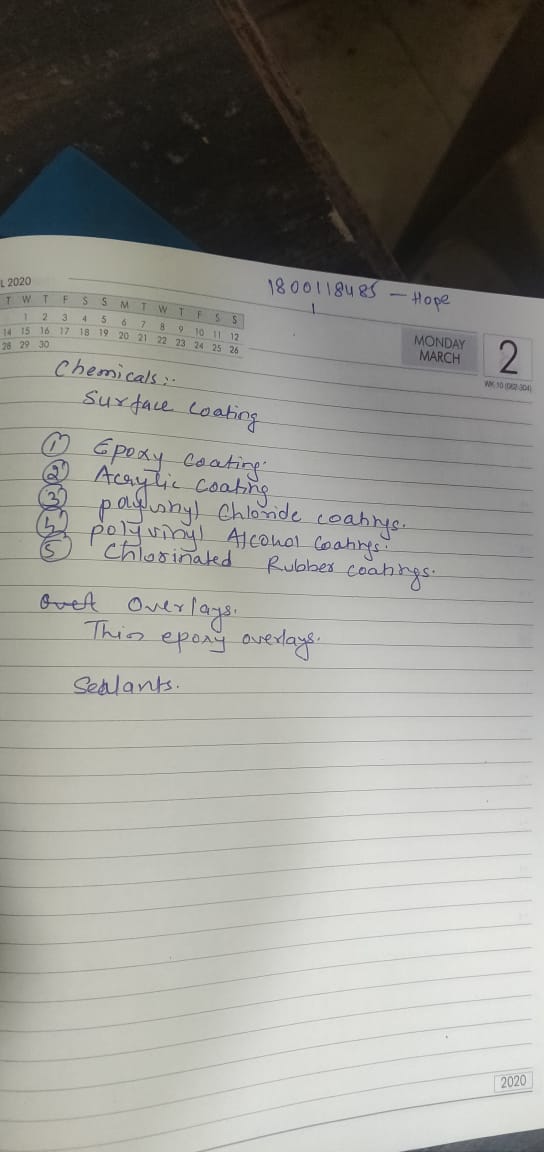 L 2020
T W T F S S M T W T F S S
1 2 3 4 5 6 7 8 9 10 11 12
14 15 16 17 18 19 20 21 22 23 24 25 26
28 29 30
1800118485 - Hope
MONDAY
MARCH
2
WK 10 (062-304)
Chemicals :-
Surface coating
① Epoxy coating.
② Acrylic coating
③ polyvinyl chloride coatings.
④ polyvinyl Alcohol coatings.
⑤ Chlorinated Rubber coatings.
Overlays.
Thin epoxy overlays.
Sealants.
2020